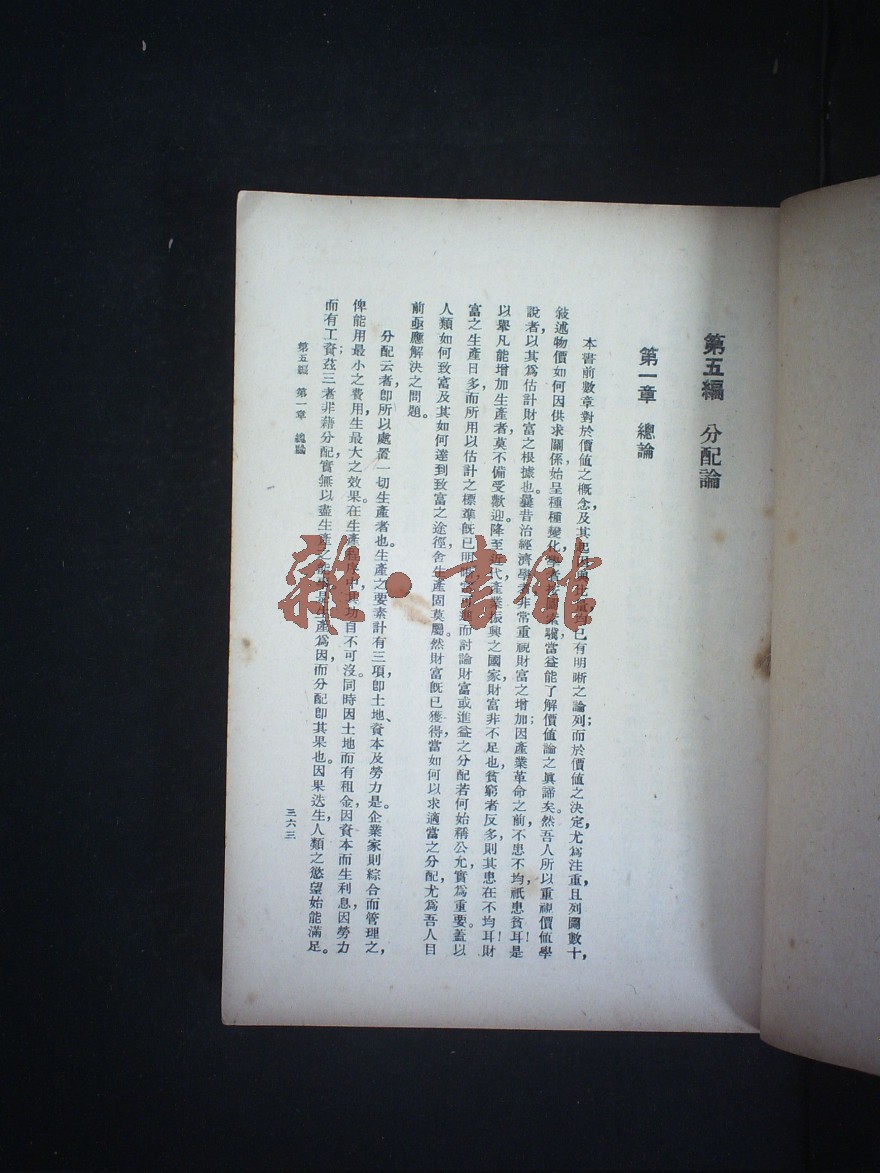 第五編　分配論
第一章　總論
本書前數章對於價値之概念，及其起因與化已有明晰之論列；而於價値之決定，尤爲注重，且列圖數十，
敍述物價如何因供求關係，始呈種種變化，學者按圖索驥，當益能了解價値論之眞諦矣。然吾人所以重視價値學
說者，以其爲估計財富之根據也。曩昔治經濟學者，非常重視財富之增加；因產業革命之前，不患不均，祇患貧耳！是
以舉凡能增加生產者，莫不備受歡迎。降至近代產業振興之國家，財富非不足也，貧窮者反多，則其患在不均耳！財
富之生產日多，而所用以估計之標準，旣已明晰，當再進而討論財富或進益之分配，若何始稱公允，實爲重要。蓋以
人類如何致富，及其如何達到致富之途徑，舍生產固莫屬，然財富旣已獲得，當如何以求適當之分配，尤爲吾人目
前亟應解決之問題。
分配云者，卽所以處置一切生產者也。生產之要素，計有三項，卽土地、資本及勞力是。企業家則綜合而管理之，
俾能用最小之費用，生最大之效果。在生產程序中，其功自不可沒。同時因土地而有租金，因資本而生利息，因勞力
而有工資；茲三者非藉分配，實無以盡生產之能事，是生產爲因，而分配卽其果也。因果迭生，人類之慾望始能滿足。
第五編　第一章　總論
三六三
雜·書館